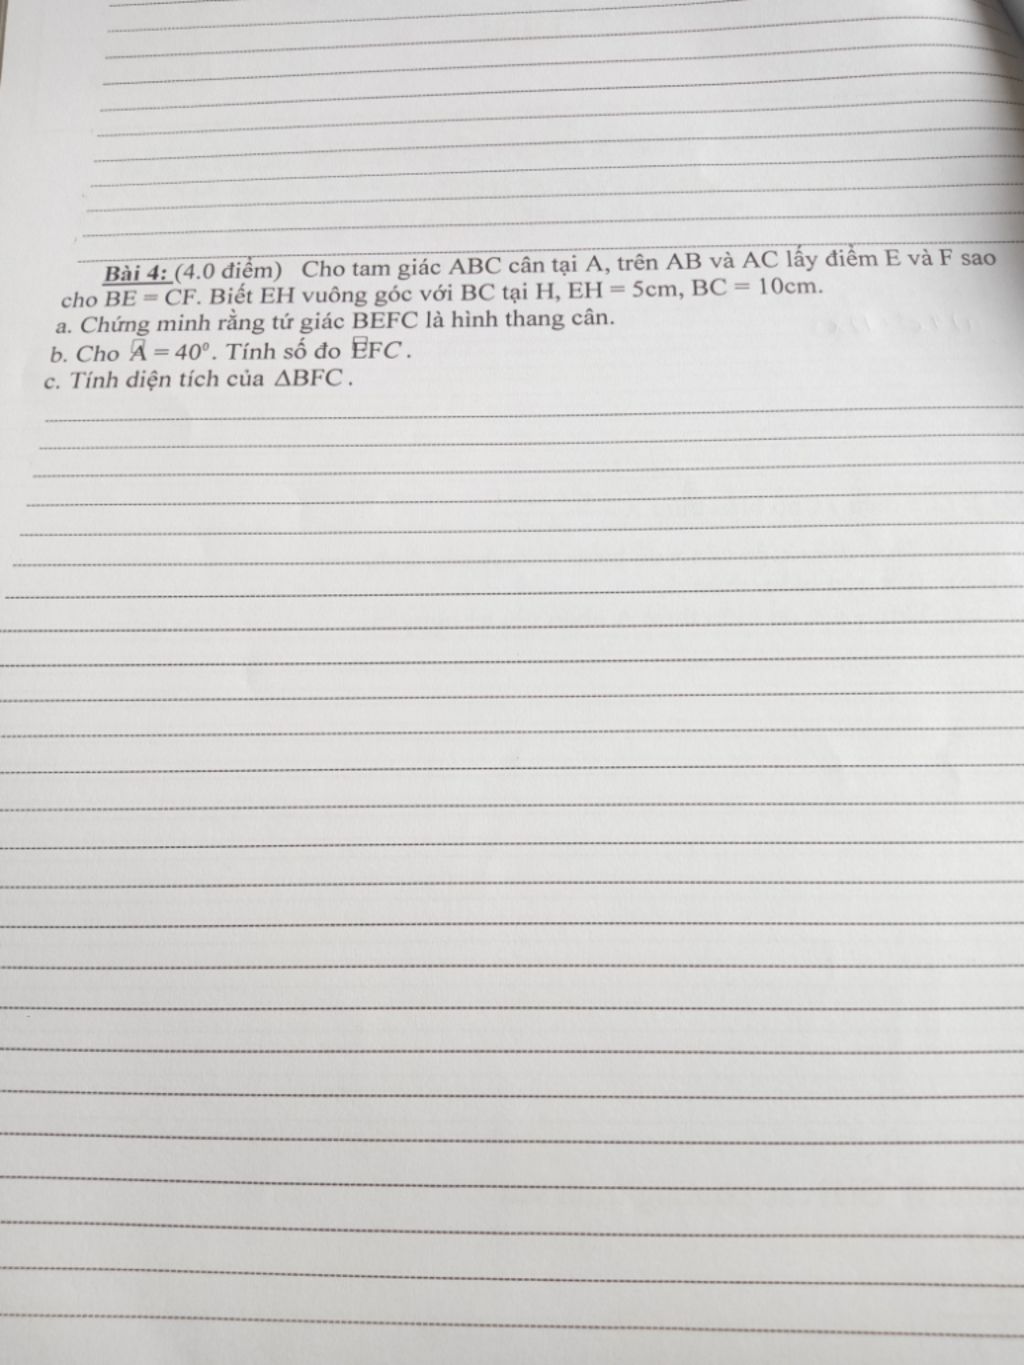 Bài 4: (4.0 điểm) Cho tam giác ABC cân tại A, trên AB và AC lấy điểm E và F sao
cho BE = CF. Biết EH vuông góc với BC tại H, EH = 5cm, BC = 10cm.
a. Chứng minh rằng tứ giác BEFC là hình thang cân.
b. Cho A = 40°. Tính số đo EFC.
c. Tính diện tích của ΔBFC.